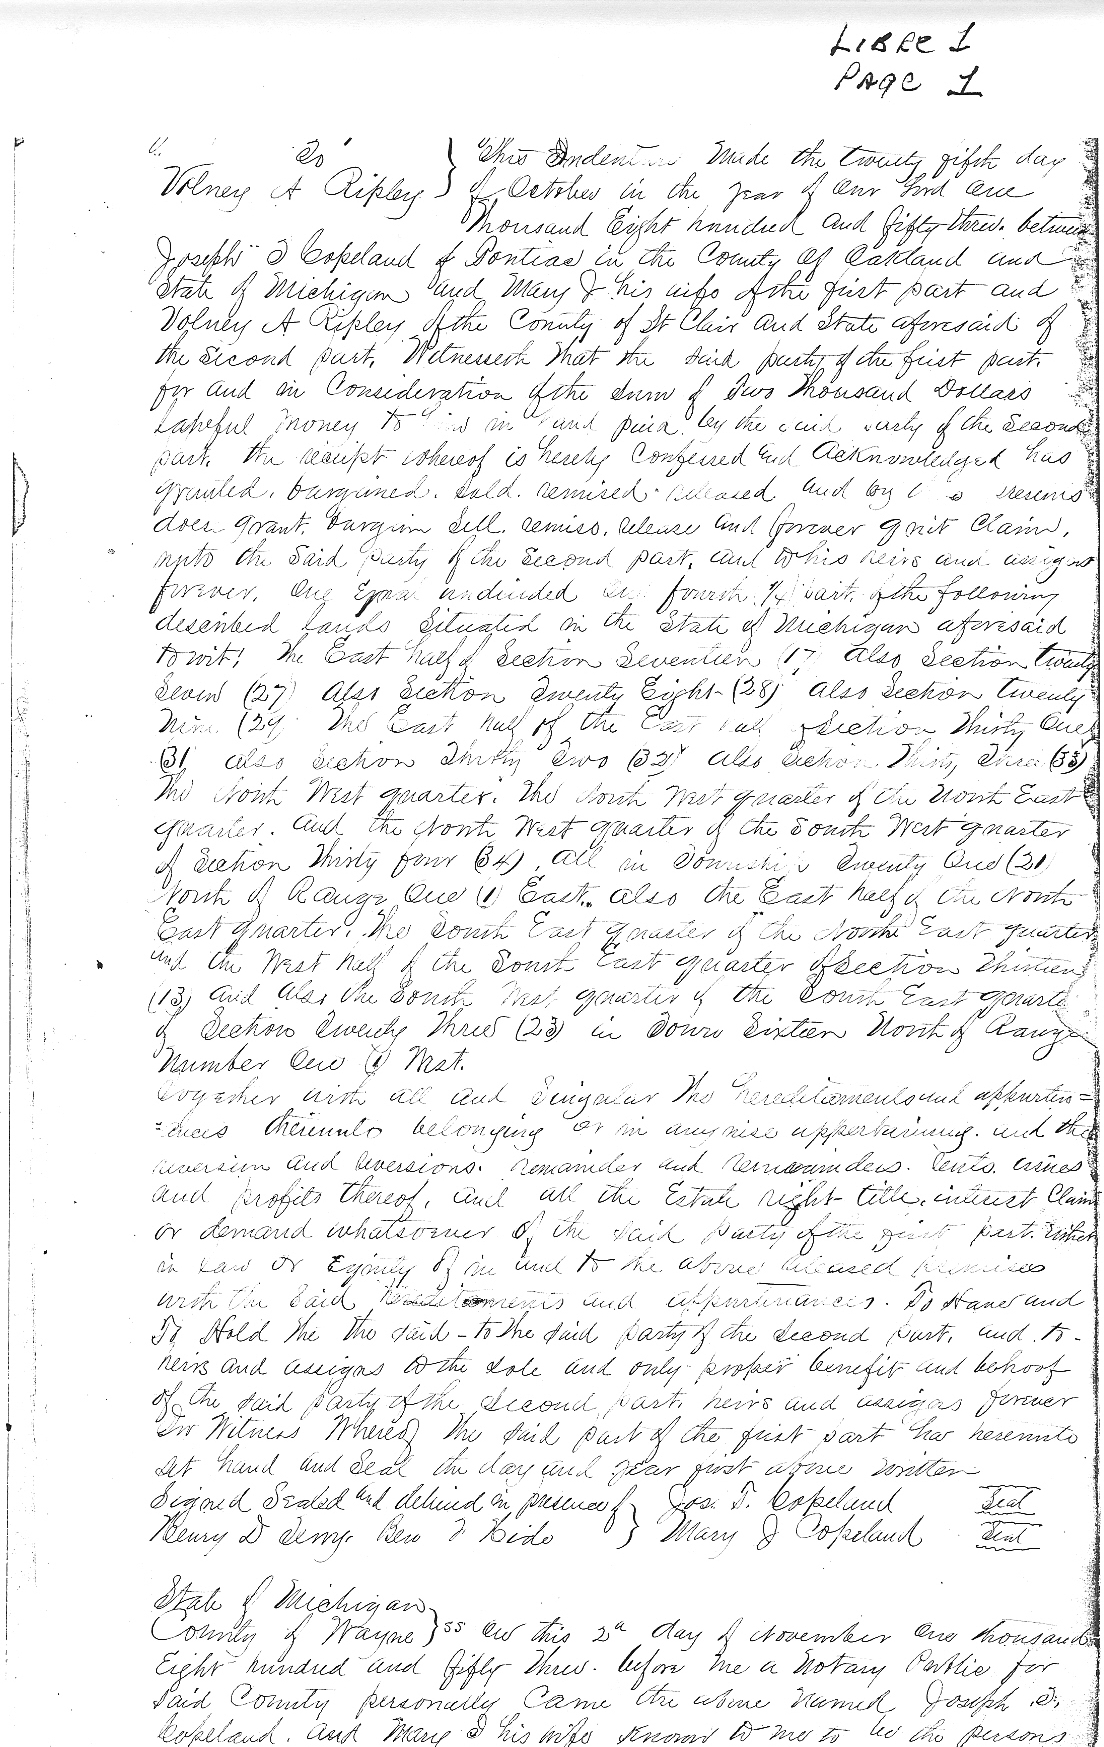 LIBRE 1
PAGE 1
To
Volney A Ripley } This Indenture Made the twenty fifth day
of October in the year of Our Lord One
Thousand Eight hundred and fifty three. between
Joseph T Copeland of Pontiac in the County of Oakland and
State of Michigan and Mary J his wife of the first part and
Volney A Ripley of the County of St Clair and State aforesaid of
the Second part, Witnesseth that the said party of the first part.
for and in Consideration of the Sum of Two Thousand Dollars
Lawful money to him in hand paid by the said party of the Second
part, the receipt whereof is hereby Confessed and Acknowledged has
granted. bargained. sold. remised. released and by these presents
does grant. bargain Sell. remise. release and forever quit Claim,
unto the Said party of the Second part, and to his heirs and assigns
forever, One Equal undivided one fourth 1/4 part. of the following
described Lands Situated in the State of Michigan aforesaid
to wit! The East half of Section Seventeen (17) Also Section twenty
Seven (27) Also Section Twenty Eight (28) Also Section twenty
Nine (29) The East half of the East half of Section Thirty One
(31) also Section Thirty Two (32) also Section Thirty Three (33)
The North West quarter. The North West quarter of the North East
quarter. and the North West quarter of the South West quarter
of Section Thirty four (34), all in Township Twenty One (21)
North of Range One (1) East. also the East half of the North
East quarter. The South East quarter of the North East quarter
and the West half of the South East quarter of Section Thirteen
(13) and also the South West quarter of the South East quarter
of Section Twenty Three (23) in Town Sixteen North of Range
Number One (1) West.
Together with all and Singular the hereditaments and appurten=
=ances thereunto belonging or in anywise appertaining. and the
reversion and reversions. remainder and remainders. rents. issues
and profits thereof, and all the Estate right title, interest Claim
or demand whatsoever of the said party of the first part. Either
in Law or Equity of in and to the above released premises
with the Said hereditaments and appurtenances. To Have and
To Hold the the said - to the said party of the Second part, and to -
heirs and assigns to the sole and only proper benefit and behoof
of the said party of the Second part, heirs and assigns forever
In Witness Whereof the said part of the first part has hereunto
set hand and Seal the day and year first above written
Signed Sealed and delivered in presence of } Jos. T. Copeland Seal
Henry D Terry. Ben } Mary J Copeland Seal
State of Michigan
County of Wayne } ss On this 2d day of November One thousand
Eight hundred and fifty Three. before me a Notary Public for
said County personally Came the above named Joseph T.
Copeland. and Mary J his wife known to me to be the persons